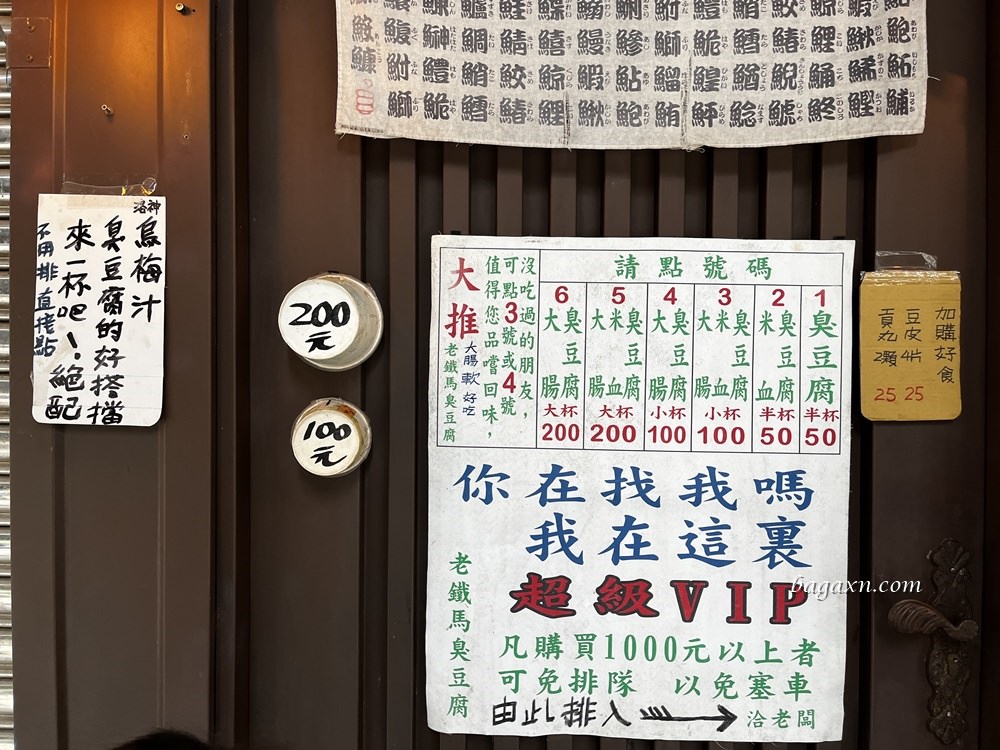 鰒 鰰 鯛 鯖 鱚 鰻 鰺 鰤 鮠 鱈 鰆 鯉 鰍 鮑
鱇 鮒 鱧 鮹 鮫 鯨 鰕 鮎 鰡 鰉 鰌 鯢 鯒 鯑 鮖
鰤 鮠 鱈 鰆 鯉 鰍 鮑 鮪 鮃 鯰 鯱 鮗 鰹 鯆
洛神
烏梅汁
臭豆腐的好搭擋
來一杯吧!絕配
不用排直接點
200元
100元
請點號碼
1 臭豆腐 半杯 50
2 臭豆腐 米血 半杯 50
3 臭豆腐 大米腸血 小杯 100
4 臭豆腐 大腸 小杯 100
5 臭豆腐 大米腸血 大杯 200
6 臭豆腐 大腸 大杯 200
沒吃過的朋友,
可點3號或4號
值得您品嘗回味,
大腸軟 好吃
大推
老鐵馬臭豆腐
你在找我嗎
我在這裏
超級VIP
老鐵馬臭豆腐
凡購買1000元以上者
可免排隊 以免塞車
由此排入 洽老闆
加購好食
豆皮4片 25
貢丸2顆 25
bagaxn.com